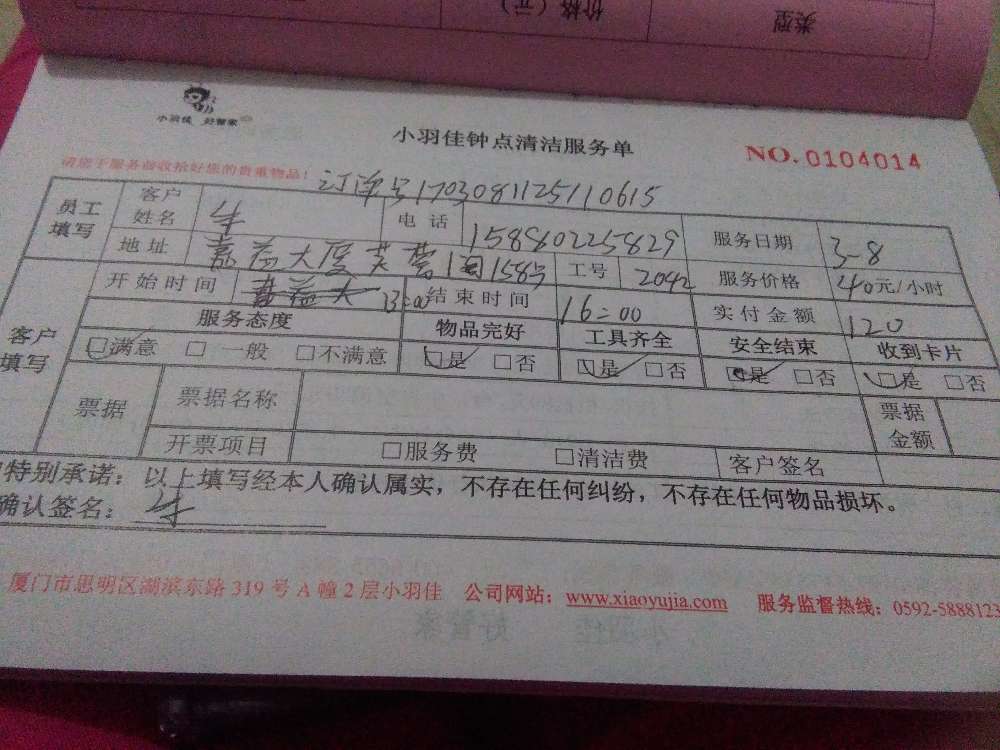 价格(元) 类型
小羽佳 好管家
小羽佳钟点清洁服务单
NO.0104014
请您于服务前收拾好您的贵重物品!
订单号1703081125110615
员工填写 客户姓名 牛 电话 15880225829 服务日期 3-8
地址 嘉益大厦芙蓉阁158号 工号 2042 服务价格 40元/小时
客户填写 开始时间 13:00 结束时间 16:00 实付金额 120
服务态度 物品完好 工具齐全 安全结束 收到卡片
□满意 □一般 □不满意 □是 □否 □是 □否 □是 □否 □是 □否
票据 票据名称 票据金额
开票项目 □服务费 □清洁费 客户签名
特别承诺:以上填写经本人确认属实,不存在任何纠纷,不存在任何物品损坏。
确认签名:牛
厦门市思明区湖滨东路319号A幢2层小羽佳 公司网站:www.xiaoyujia.com 服务监督热线:0592-5888123